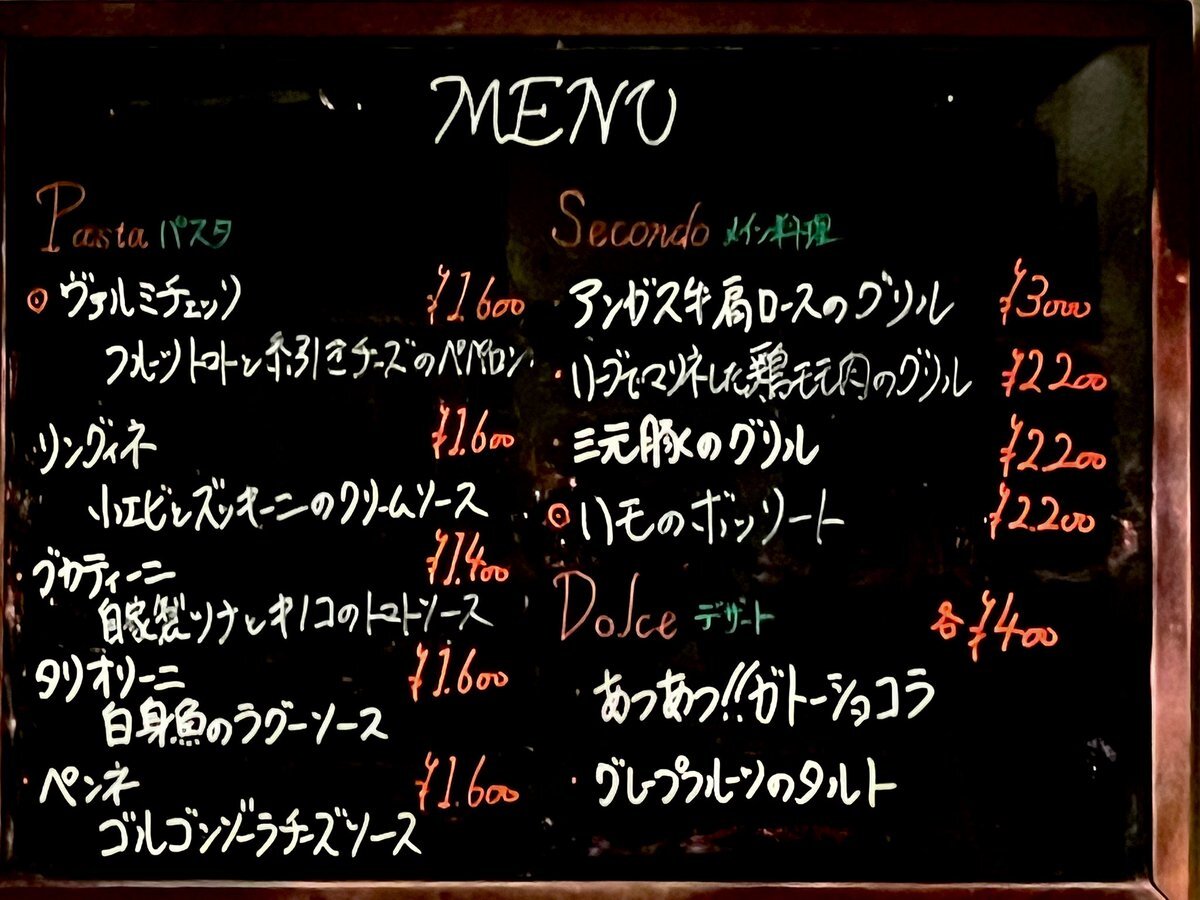 MENU
Pasta パスタ
ヴァルミチェッリ ¥1.600
フルーツトマトと糸引きチーズのペペロン
リングィネ ¥1.600
小エビとズッキーニのクリームソース
ブカティーニ ¥1.400
自家製ツナとキノコのトマトソース
タリオリーニ ¥1.600
白身魚のラグーソース
・ペンネ ¥1.600
ゴルゴンゾーラチーズソース
Secondo メイン料理
・アンガス牛肩ロースのグリル ¥3000
・ハーブでマリネした鶏モモ肉のグリル ¥2200
・三元豚のグリル ¥2200
ハモのボッリート ¥2.200
Dolce デザート 各¥400
・あつあつ!!ガトーショコラ
・グレープフルーツのタルト